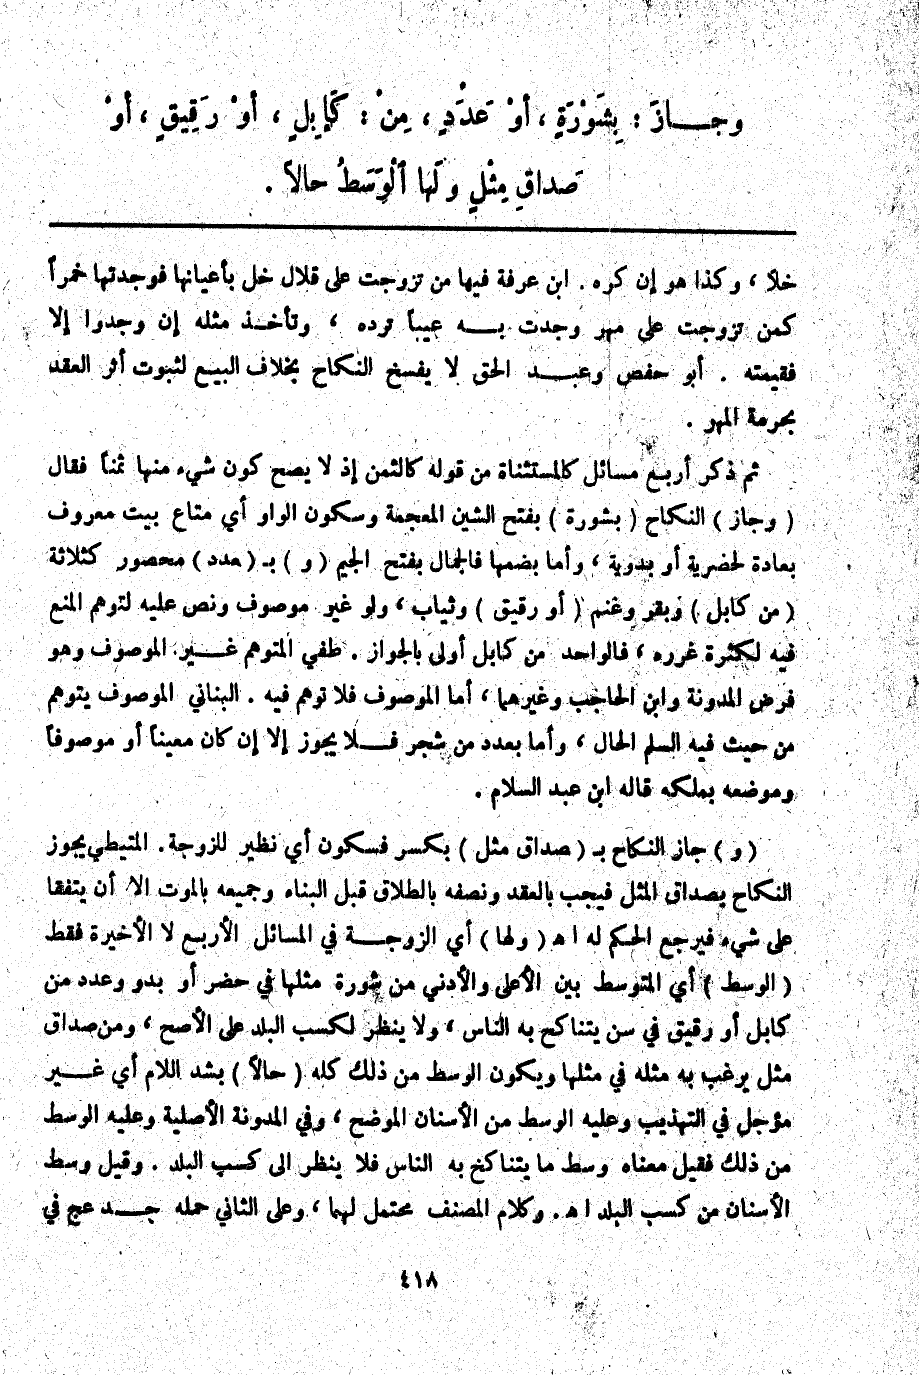 وجـــازَ : بِشَوْرَةٍ ، أوْ عَدَدٍ ، مِنْ : كَإِبِلٍ ، أوْ رَقِيقٍ ، أوْ
صَداقِ مِثْلٍ ولَها ٱلْوَسَطُ حالاً .
خلا ، وكذا هو إن كره . ابن عرفة فيها من تزوجت على قلال خل بأعيانها فوجدتها خمراً
كمن تزوجت على مهر وجدت بـــه عيباً ترده ، وتأخـذ مثله إن وجدوا إلا
فقيمته . أبو حفص وعبـــد الحق لا يفسخ النكاح بخلاف البيع لثبوت أثر العقد
بحرمة المهر .
ثم ذكر أربع مسائل كالمستثناة من قوله كالثمن إذ لا يصح كون شيء منها ثمناً فقال
( وجاز ) النكاح ( بشورة ) بفتح الشين المعجمة وسكون الواو أي متاع بيت معروف
بعادة لحضرية أو بدوية ، وأما بضمها فالجمال بفتح الجيم ( و ) بـ ( عدد ) محصور كثلاثة
( من كابل ) وبقر وغنم ( أو رقيق ) وثياب ، ولو غير موصوف ونص عليه لتوهم المنع
فيه لكثرة غرره ، فالواحد من كابل أولى بالجواز . طفي المتوهم غـــير الموصوف وهو
فرض المدونة وابن الحاجب وغيرهما ، أما الموصوف فلا توهم فيه . البناني الموصوف يتوهم
من حيث فيه السلم الحال ، وأما بعدد من شجر فـــلا يجوز إلا إن كان معيناً أو موصوفاً
وموضعه بملكه قاله ابن عبد السلام .
( و ) جاز النكاح بـ ( صداق مثل ) بكسر فسكون أي نظير للزوجة . المتيطي يجوز
النكاح بصداق المثل فيجب بالعقد ونصفه بالطلاق قبل البناء وجميعه بالموت الا أن يتفقا
على شيء فيرجع الحكم له ا هـ ( ولها ) أي الزوجـــة في المسائل الأربع لا الأخيرة فقط
( الوسط ) أي المتوسط بين الأعلى والأدنى من شورة مثلها في حضر أو بدو وعدد من
كابل أو رقيق في سن يتناكح به الناس ، ولا ينظر لكسب البلد على الأصح ، ومن صداق
مثل يرغب به مثله في مثلها ويكون الوسط من ذلك كله ( حالاً ) بشد اللام أي غـــير
مؤجل في التهذيب وعليه الوسط من الأسنان الموضح ، وفي المدونة الأصلية وعليه الوسط
من ذلك فقيل معناه وسط ما يتناكح به الناس فلا ينظر الى كسب البلد . وقيل وسط
الأسنان من كسب البلد ا هـ . وكلام المصنف محتمل لهما ، وعلى الثاني حمله جـــد عج في
٤١٨